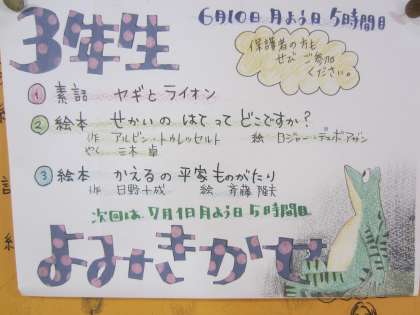 3年生
6月10日 月よう日 5時間目
保護者の方も
ぜひ ご参加
ください。
① 素話 ヤギと ライオン
② 絵本 せかいの はて って どこですか?
作 アルビン・トゥレッセルト 絵 ロジャー・デュボアザン
やく 三木 卓
③ 絵本 かえるの 平家 ものがたり
作 日野 十成 絵 斉藤 隆夫
次回は 7月1日 月よう日 5時間目
よみきかせ